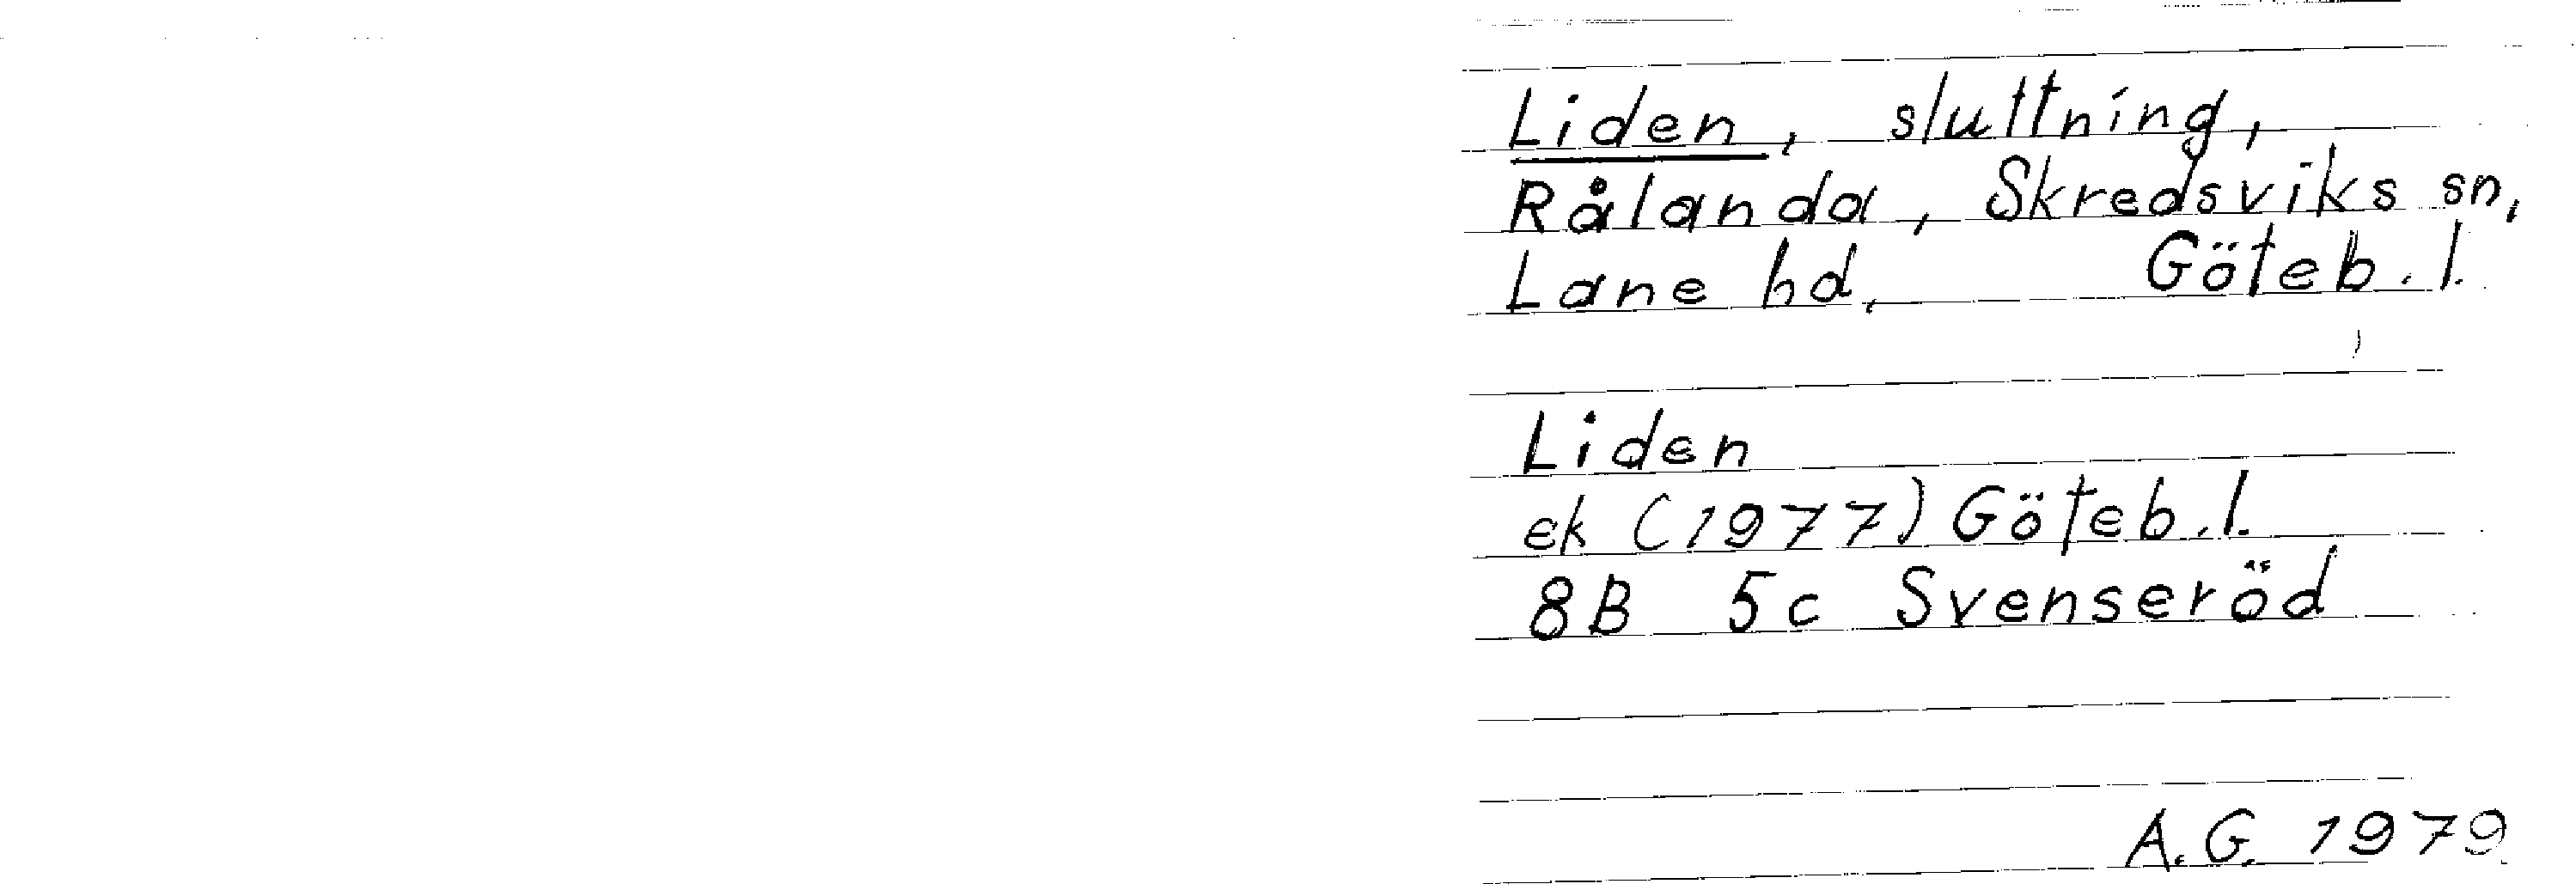 Liden, sluttning,
Rålanda, Skredsviks sn,
Lane hd, Göteb. l.
Liden
ek (1977) Göteb. l.
8B 5c Svenseröd
A.G. 1979